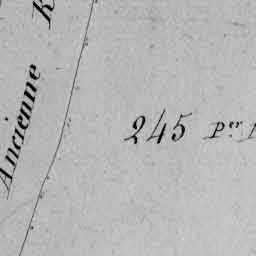 Ancienne
245 Per